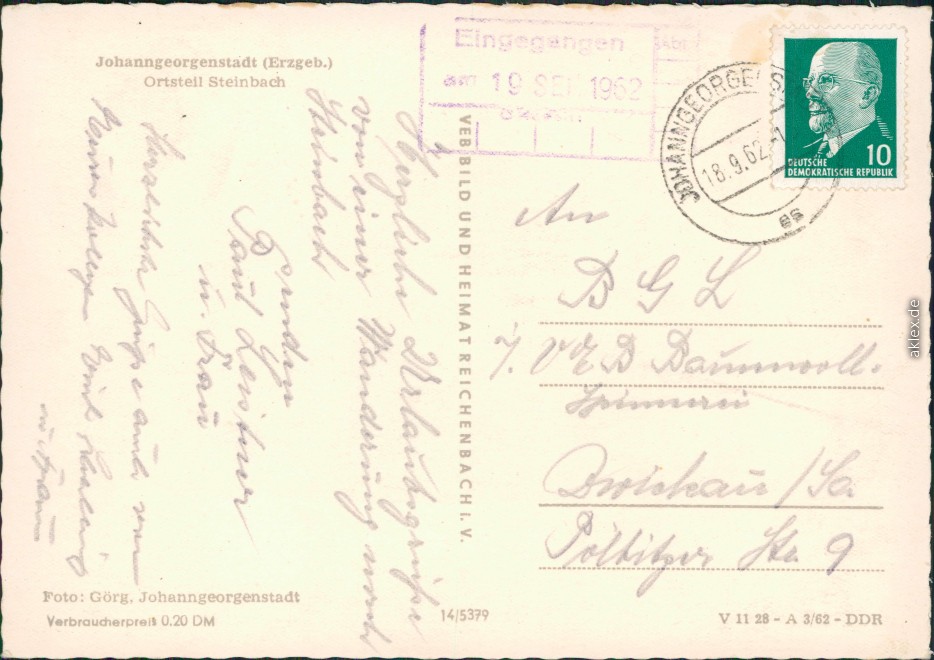 Johanngeorgenstadt (Erzgeb.)
Ortsteil Steinbach
Eingegangen
am 19 SEP. 1962
JOHANNGEORGENST
18.9.62
DEUTSCHE
DEMOKRATISCHE REPUBLIK
10
Herzliche Urlaubsgrüße
von einer Wanderung nach
Steinbach
senden
Paul Leistner
u. Frau
Herzlichste Grüße auch von
u. Frau
VEB BILD UND HEIMAT REICHENBACH i. V.
An
B G L
i/. VEB Baumwoll-
spinnerei
Zwickau / Sa.
Pölbitzer Str. 9
Foto: Görg, Johanngeorgenstadt
Verbraucherpreis 0.20 DM
14/5379
V 11 28 - A 3/62 - DDR
aklex.de